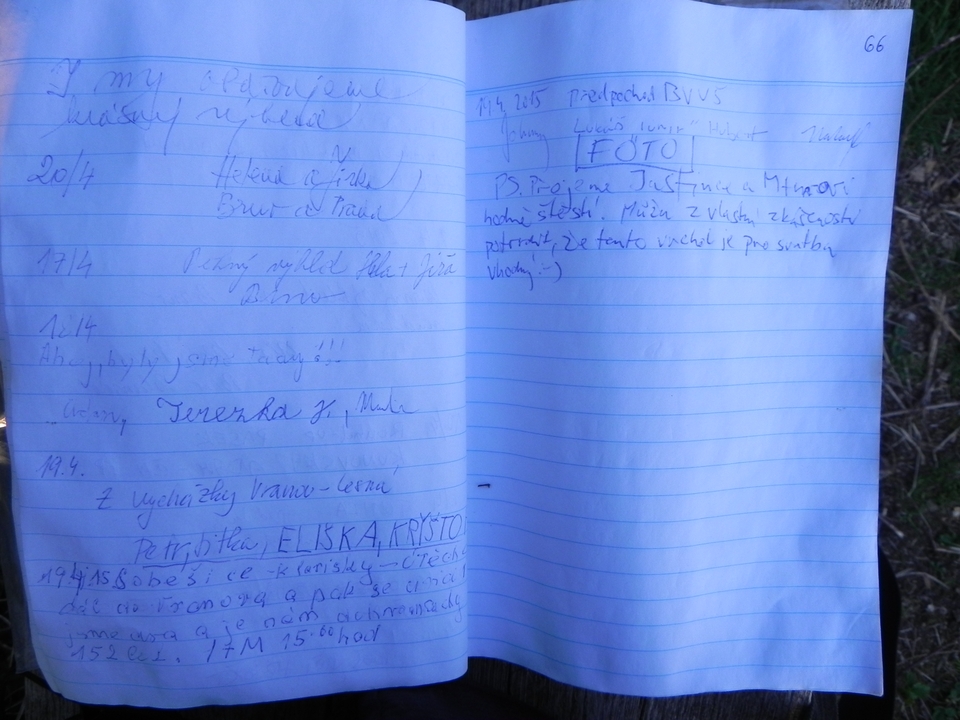 I my obdivujeme
krásný výhled
20/4 Helena a Jirka
Brno a Praha
17/4 Pěkný výhled + Jiří
Brno
Ahoj, byly jsme taady!!!
Terezka H.,
19.4.
Z vycházky Vranov - Lesná
Petr, Jitka, ELIŠKA, KRYŠTO
19.4.15 Soběšice - Klarisky - Útěch
dál do Vranova a pak se
jsme dva a je nám
152 let. 17M 15.00 hod
66
19.4.2015 Předpochod BVV5
Johny Lukáš Hubert
FOTO
PS. Přejeme Justince a
hodně štěstí. Můžu z vlastní zkušenosti
potvrdit, že tento vrchol je pro svatbu
vhodný :-)